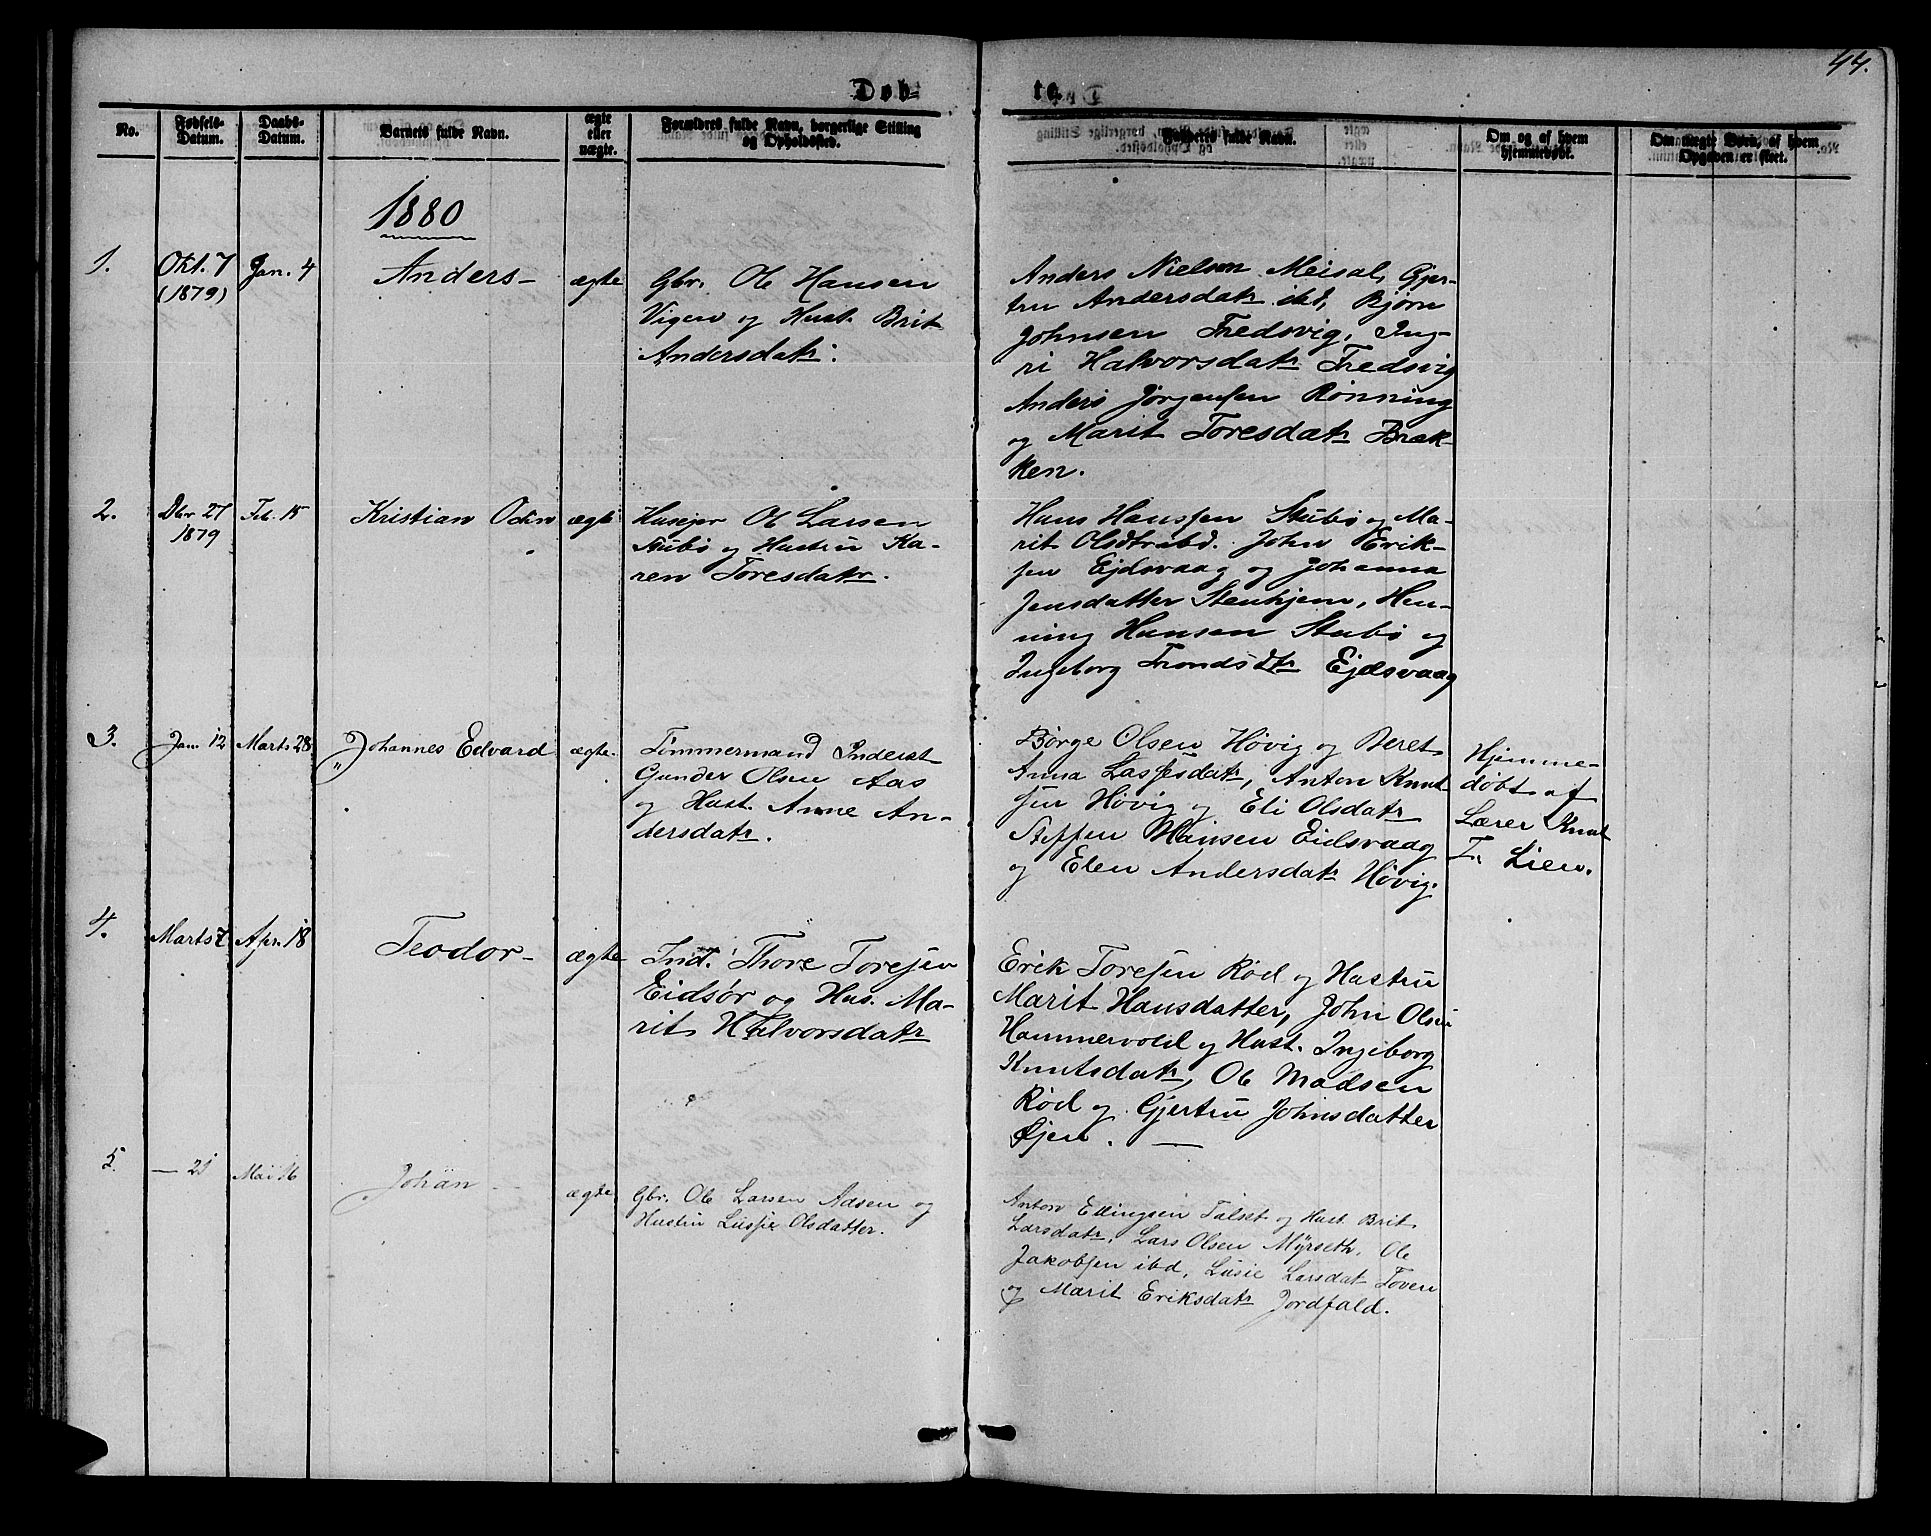 44.
Døb-
te.
No.
Fødsels-Datum.
Daabs-Datum.
Barnets fulde Navn.
ægte eller uægte.
Forældres fulde Navn, borgerlige Stilling og Opholdssted.
Faddernes fulde Navn.
Om og af hvem hjemmedøbt.
Om uægte Børn, af hvem Opgaven er skeet.
1880
1. Okt. 7 (1879) Jan. 4 Anders - ægte
Gbr. Ole Hansen
Vigen og Hust. Brit
Andersdatr.
Anders Nielsen Meisal, Gjer-
tru Andersdatr ibd, Bjørn
Johnsen Fredsvig, Ing-
ri Halvorsdatr Fredsvig
Anders Jørgensen Rønning
og Marit Toresdatr Bræk-
ken.
2. Dbr 27 1879 Feb. 15 Kristian Odin ægte
Husejer Ole Larsen
Stubø og Hustru Ka-
ren Toresdatr.
Hans Hanssen Stubø og Ma-
rit Olsdtr ibd. John Erik-
sen Ejdsvaag og Johanna
Jensdatter Stenhjem, Hen-
ning Hansen Stubø og
Ingeborg Tronds dtr Ejdsvaag
3. Jan. 12 Marts 28 Johannes Edvard ægte.
Tømmermand Inderst
Gunder Olsen Aas
og Hust. Anne An-
dersdatr.
Børge Olsen Høvig og Beret
Anna Lassesdatr, Anton Knut
sen Høvig og Eli Olsdatr
Steffen Hansen Eidsvaag
og Elen Andersdatr Høvig.
Hjemme-
døbt af
Lærer Knut
T. Lien.
4. Marts 7 Apr. 18 Teodor - ægte
Ind. Thore Toresen
Eidsør og Hus. Ma-
rit Halvorsdatr
Erik Toresen Rød og Hustru
Marit Hansdatter, John Olsen
Hammervold og Hust. Ingeborg
Knutsdatr, Ole Madsen
Rød og Gjertru Johnsdatter
Øjen. —
5. — 21 Mai 16 Johan - ægte
Gbr. Ole Larsen Aasen og
Hustru Lussie Olsdatter.
Anton Ellingsen Talset og Hust. Brit
Larsdatr, Lars Olsen Myrseth, Ole
Jakobsen ibd, Lusie Larsdatr Toven
og Marit Eriksdatr Jordfald.